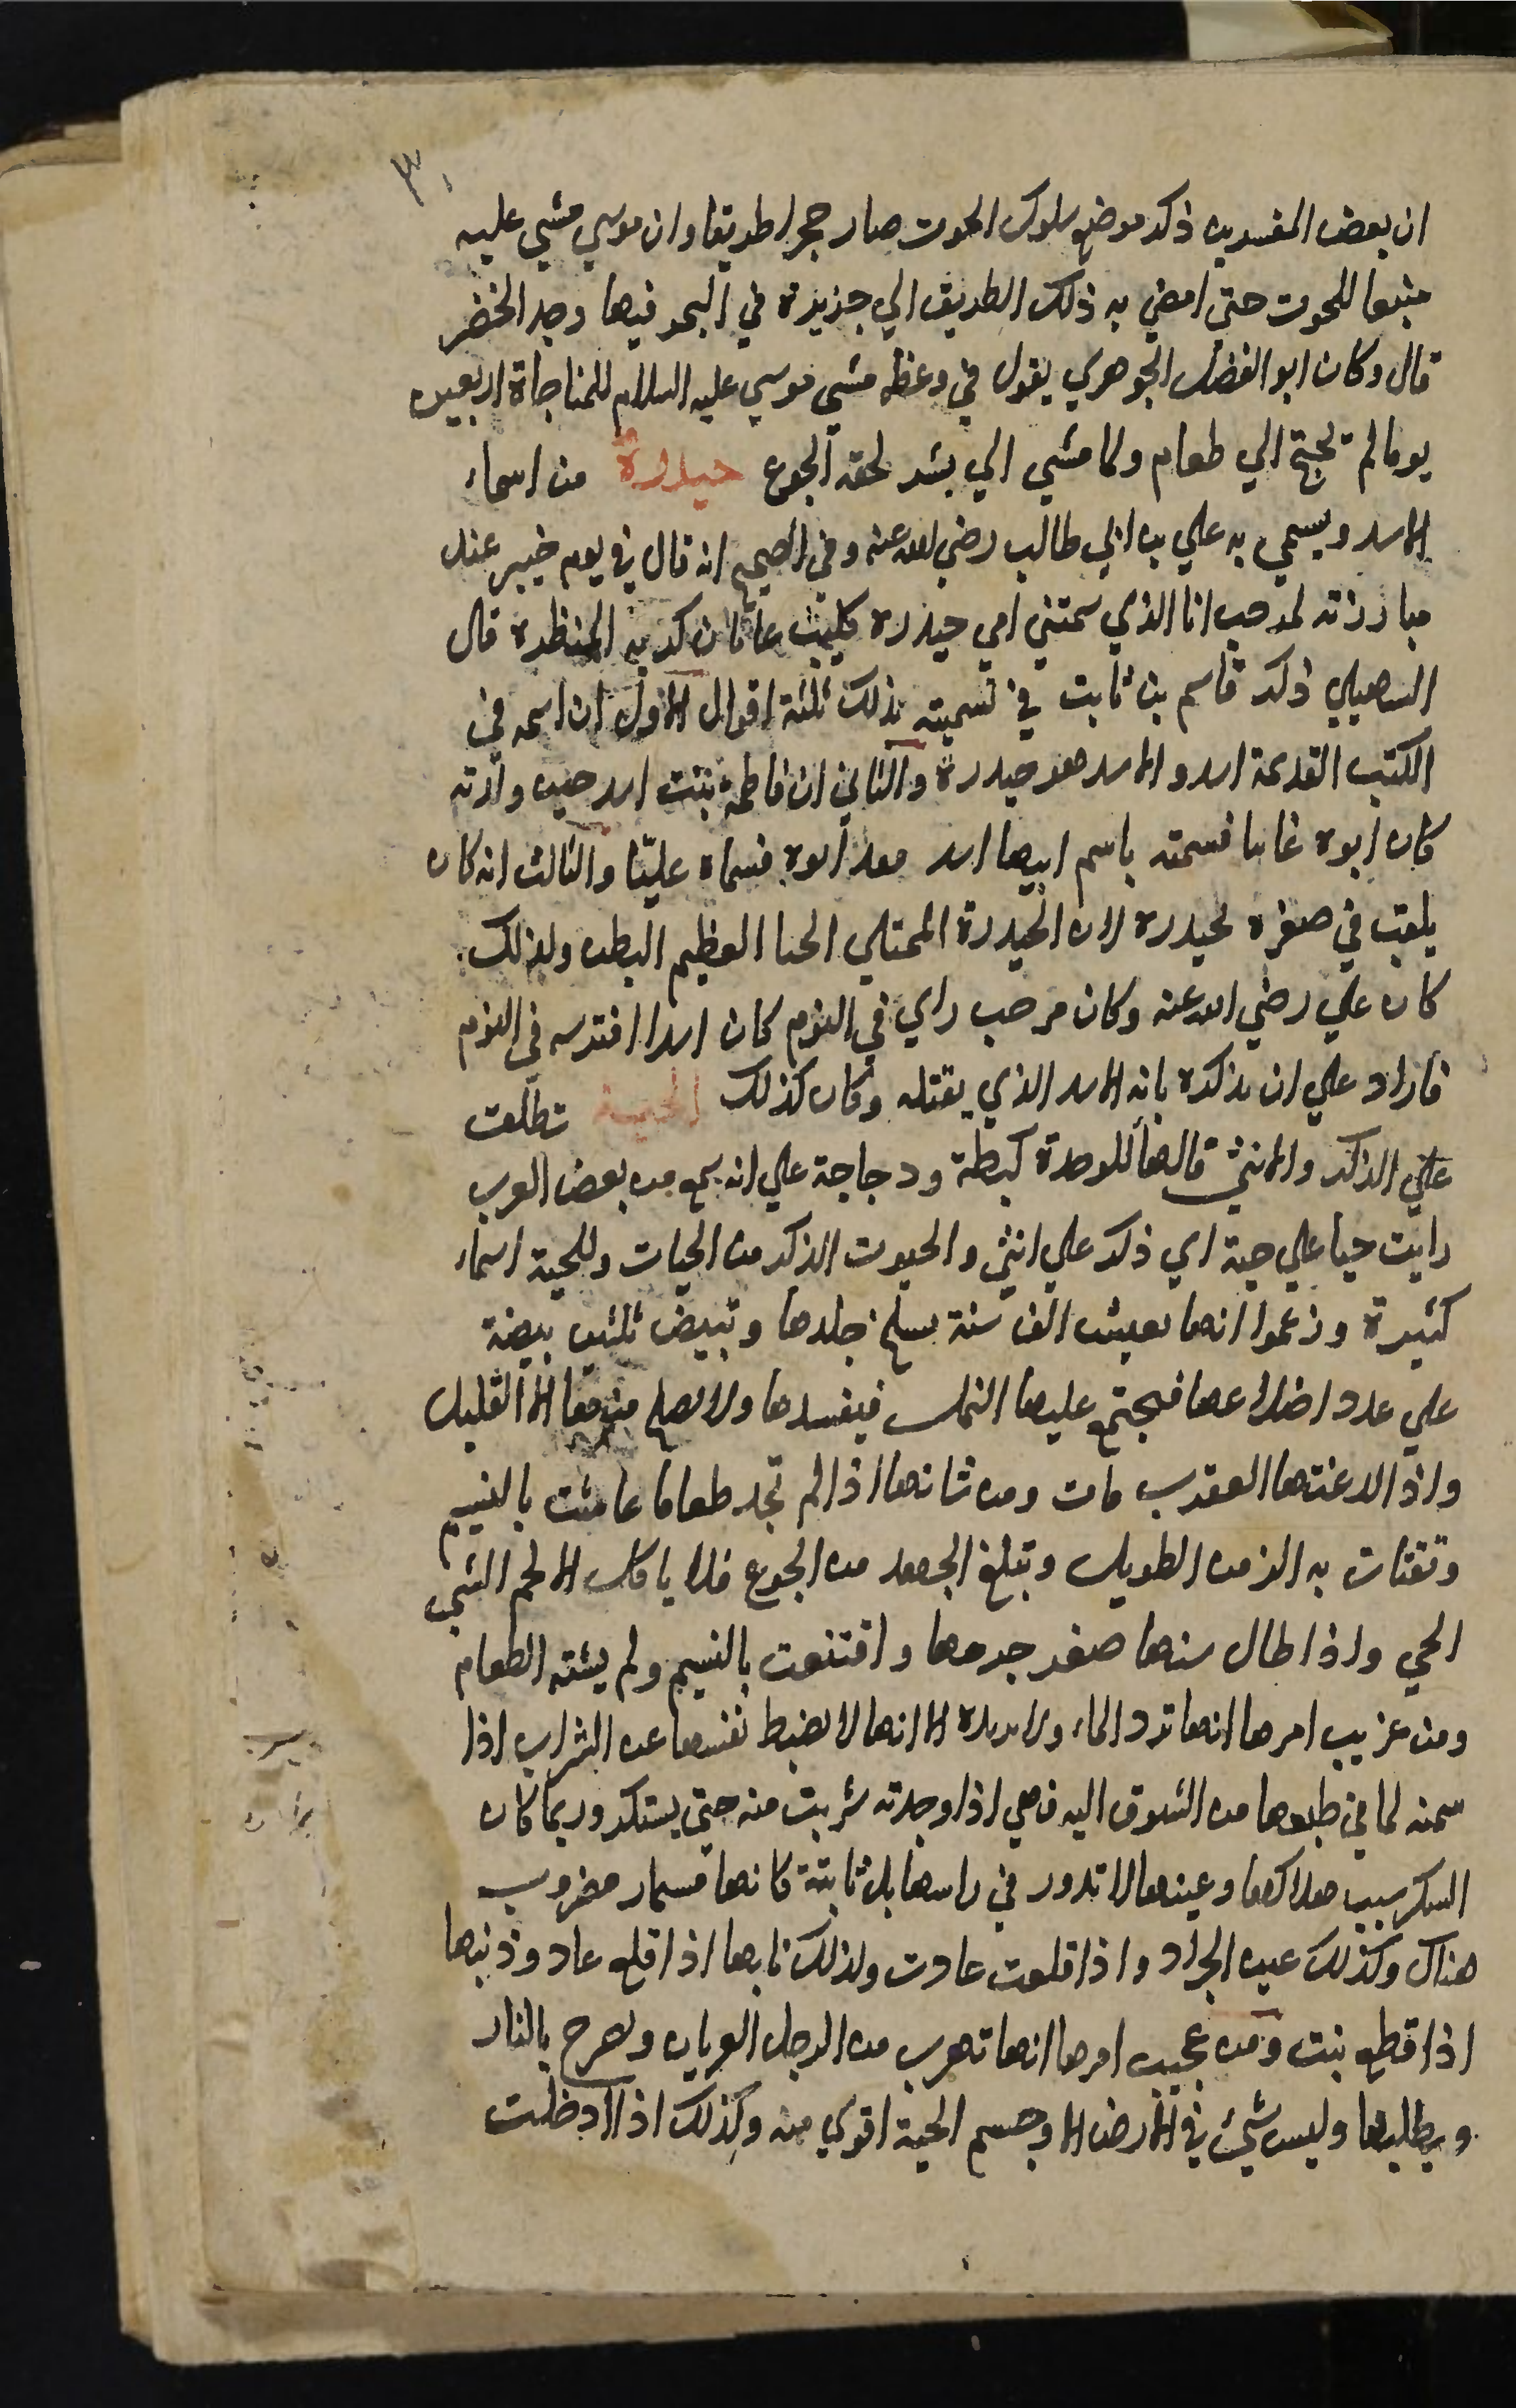 ٣٠
ان بعض المفسرين ذكر موضع سلوك الحوت صار حجرا طريقا وان موسي مشي عليه
متبعا للحوت حتى افضي به ذلك الطريق الي جزيرة في البحر فيها وجد الخضر
قال وكان ابو الفضل الجوهري يقول في وعظه مشي موسي عليه السلام للمناجاة اربعين
يوما لم تحتج الي طعام ولما مشي الي بشر لحقه الجوع حيدرة من اسماء
الاسد ويسمي به علي بن ابي طالب رضي الله عنه وفي الصحيح انه قال في يوم خيبر عند
مبارزته لمرحب انا الذي سمتني امي حيدره كليث غابات كريه المنظره قال
السهيلي ذكر قاسم بن ثابت في تسميته بذلك ثلثة اقوال الاول ان اسمه في
الكتب القديمة اسد والاسد هو حيدرة والثاني ان فاطمة بنت اسد حين ولدته
كان ابوه غايبا فسمته باسم ابيها اسد فقدم ابوه فسماه عليّا والثالث انه كان
يلقب في صغره بحيدره لان الحيدرة الممتلي لحما العظيم البطن ولذلك
كان علي رضي الله عنه وكان مرحب راي في النوم كان اسدا افترسه في النوم
فاراد علي ان يذكره بانه الاسد الذي يقتله وكان كذلك الحية تطلق
علي الذكر والانثي قالها للوحدة كبطة ودجاجة علي انه سمع من بعض العرب
رايت حيا علي حية اي ذكر علي انثي والحيوت الذكر من الحيات وللحية اسماء
كثيرة وزعموا انها تعيش الف سنة يسلخ جلدها وتبيض ثلثين بيضة
علي عدد اضلاعها فيجتمع عليها النمل فيفسدها ولا يصلح منها الا القليل
واذا لدغتها العقرب مات ومن شانها اذا لم تجد طعاما عاشت بالنسيم
وتقتات به الزمن الطويل وتبلغ الجهد من الجوع فلا ياكل الا لحم الشي
الحي واذا طال سنها صغر جرمها واقتنعت بالنسيم ولم يشته الطعام
ومن غريب امرها انها ترد الماء ولا تريده الا انها لا تضبط نفسها عن الشراب اذا
سمته لما في طبعها من الشوق اليه فهي اذا وجدته شربت منه حتى يسكر وربما كان
السكر سبب هلاكها وعينها لا تدور في راسها بل ثابتة كانها مسمار مضروب
هناك وكذلك عين الجراد واذا قلعت عادت ولذلك نابها اذا قلع عاد وذنبها
اذا قطع نبت ومن عجيب امرها انها تهرب من الرجل العريان وتفرح بالنار
ويطلبها وليس شيئ في الارض الا وجسم الحية اقوي منه وكذلك اذا ادخلت